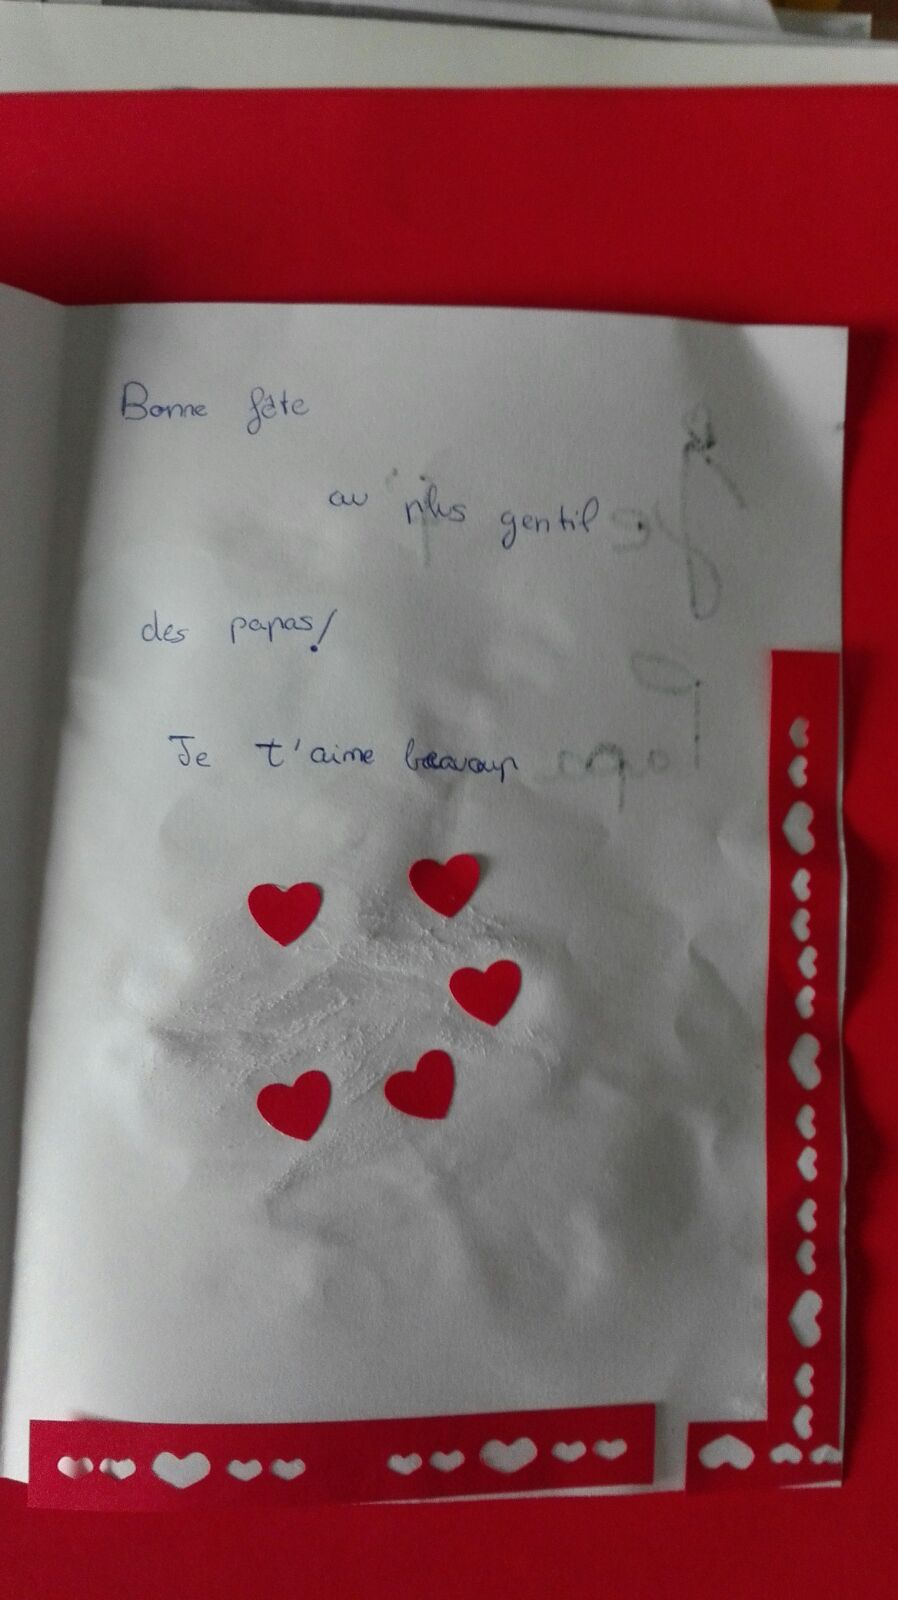 Bonne fête
au plus gentil
des papas!
Je t'aime beaucoup
Papa